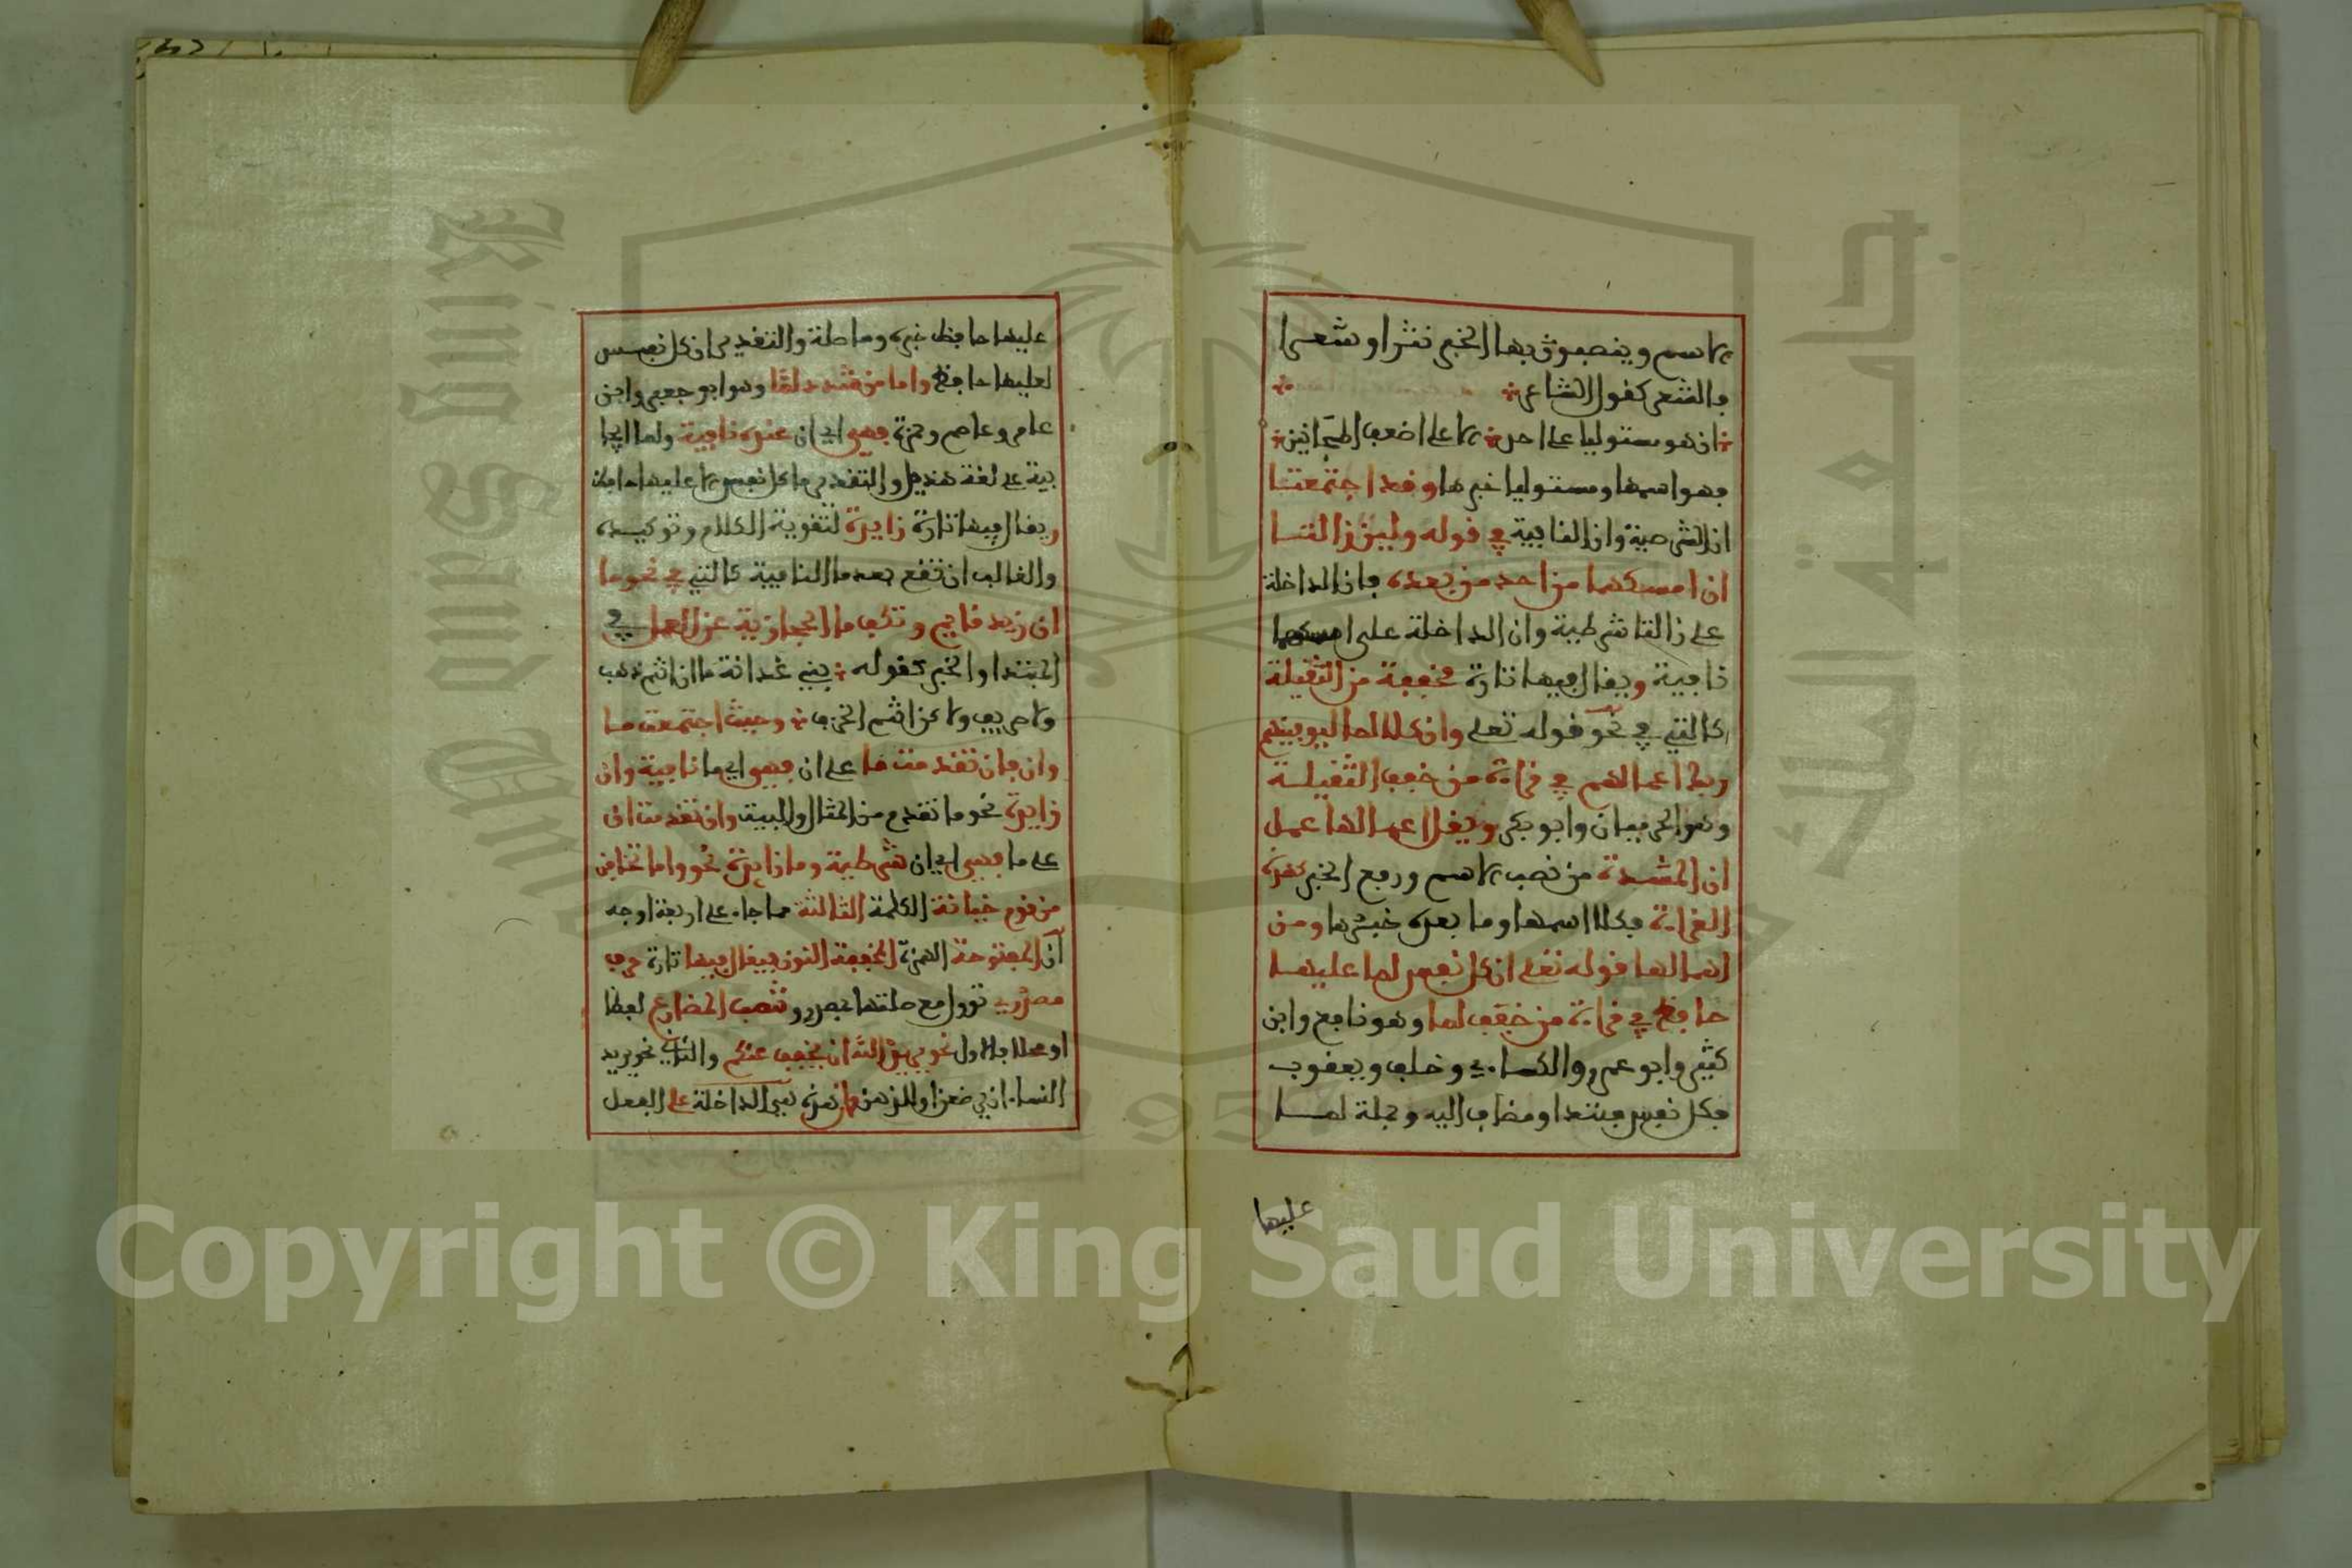 الاسم وينصبون بها الخبر نثرا وشعرا
فالشعر كقول الشاعر
ان هو مستوليا على احد الا على اضعف المجانين
فهو اسمها ومستوليا خبرها وقد اجتمعتا
ان الشرطية وان النافية في قوله ولئن زالتا
ان امسكهما من احد من بعده فان الداخلة
على زالتا شرطية وان الداخلة على امسكهما
نافية ويقال فيها تارة مخففة من الثقيلة
كالتي في نحو قوله تعلى وان كلا لما ليوفينهم
ربك اعمالهم في قراءة من خفف الثقيلة
وهو الحرميان وابو بكر ويقل اعمالها عمل
ان المشددة من نصب الاسم ورفع الخبر كهذه
القراءة فكلا اسمها وما بعده خبرها ومن
اهمالها قوله تعلى ان كل نفس لما عليها
حافظ في قراءة من خفف لما وهو نافع وابن
كثير وابو عمرو والكساءي وخلف ويعقوب
فكل نفس مبتدا ومضاف اليه وجملة لما
عليها
عليها حافظ خبره وما صلة والتقدير ان كل نفس
لعليها حافظ واما من شدد لما وهو ابو جعفر وابن
عامر وعاصم وحمزة فهي اي ان عنده نافية ولما ايجا
بية على لغة هذيل والتقدير ما كل نفس الا عليها حافظ
ويقال فيها تارة زايدة لتقوية الكلام وتوكيده
والغالب ان تقع بعد ما النافية كالتي في نحو ما
ان زيد قايم وتكف ما الحجازية عن العمل في
المبتدا والخبر كقوله بني غدانة ما ان انتم ذهب
ولا صريف ولا كن انتم الخزف وحيث اجتمعت ما
وان فان تقدمت ما على ان فهي اي ما نافية وان
زايدة نحو ما تقدم من المثال والبيت وان تقدمت ان
على ما فهي اي ان شرطية وما زايدة نحو واما تخافن
من قوم خيانة الكلمة الثالثة مما جاء على اربعة اوجه
ان المفتوحة الهمزة المخففة النون فيقال فيها تارة حرف
مصدري تؤول مع صلتها بمصدر وتنصب المضارع لفظا
او محلا فالاول نحو يريد الله ان يخفف عنكم والثاني نحو يريد
النساء ان يرضعن اولادهن وان هذه هي الداخلة على الفعل
Copyright © King Saud University